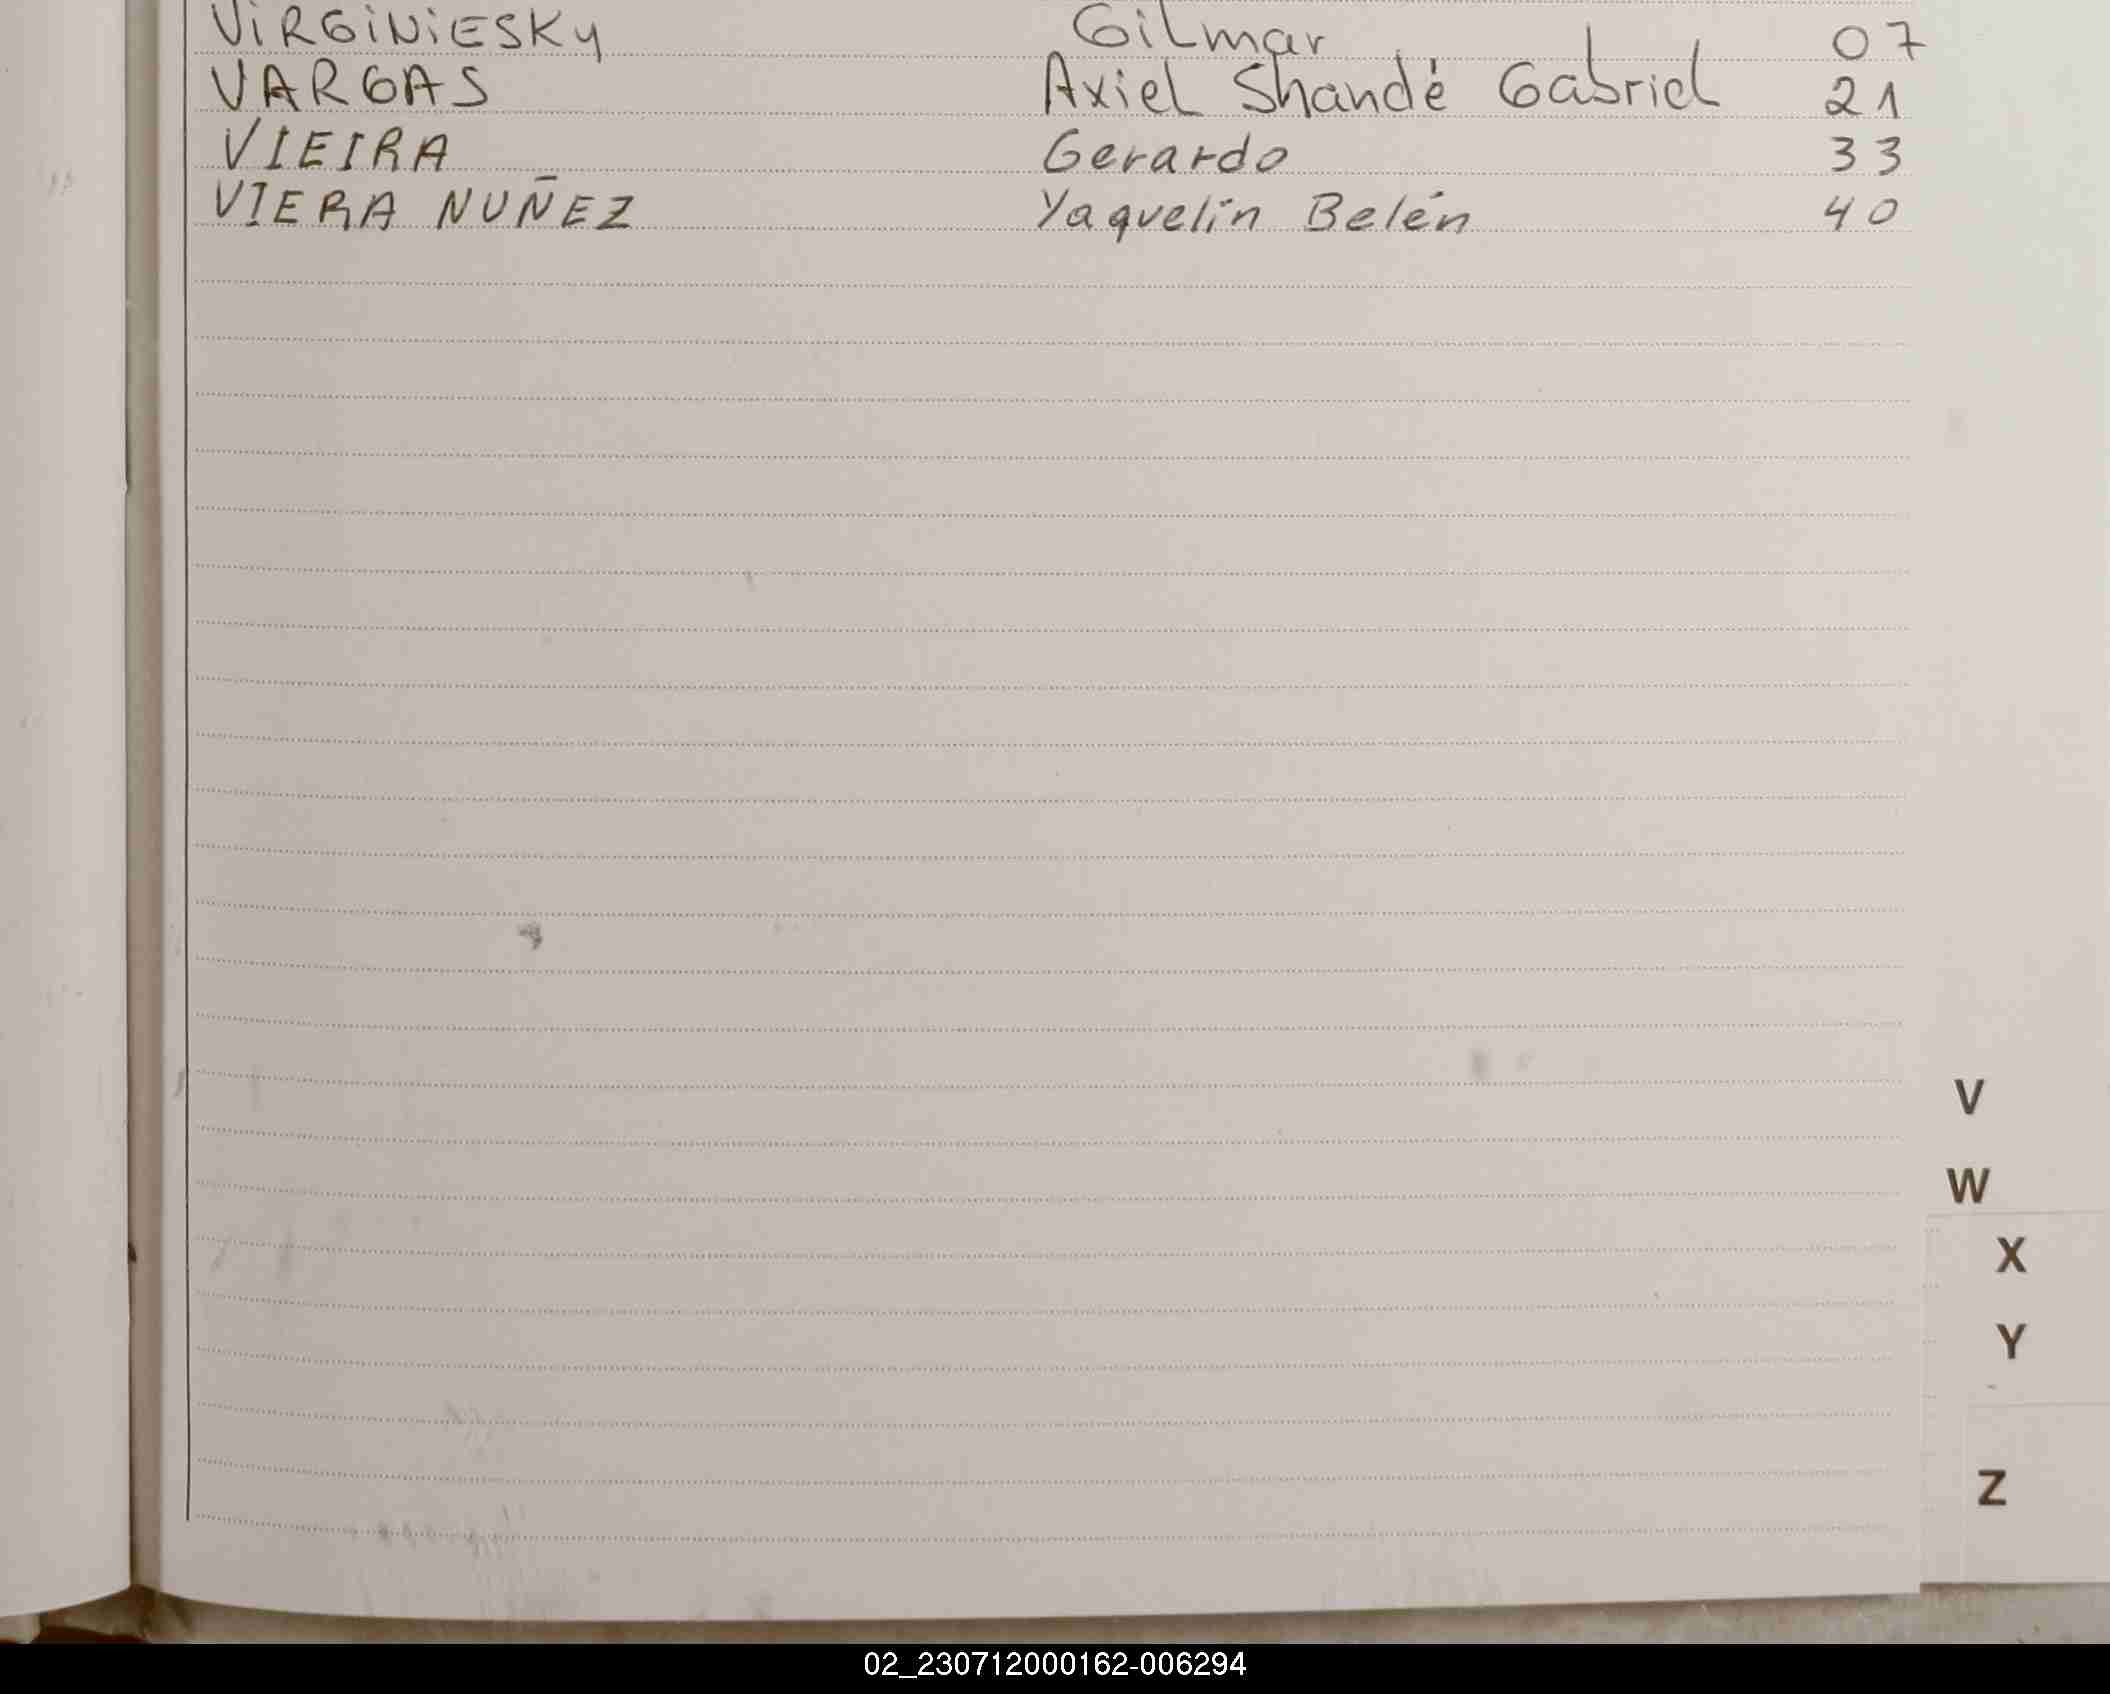 VIRGINIESKY Gilmar 07
VARGAS Axiel Shandé Gabriel 21
VIEIRA Gerardo 33
VIERA NUÑEZ Yaquelín Belén 40
V
W
X
Y
Z
02_230712000162-006294